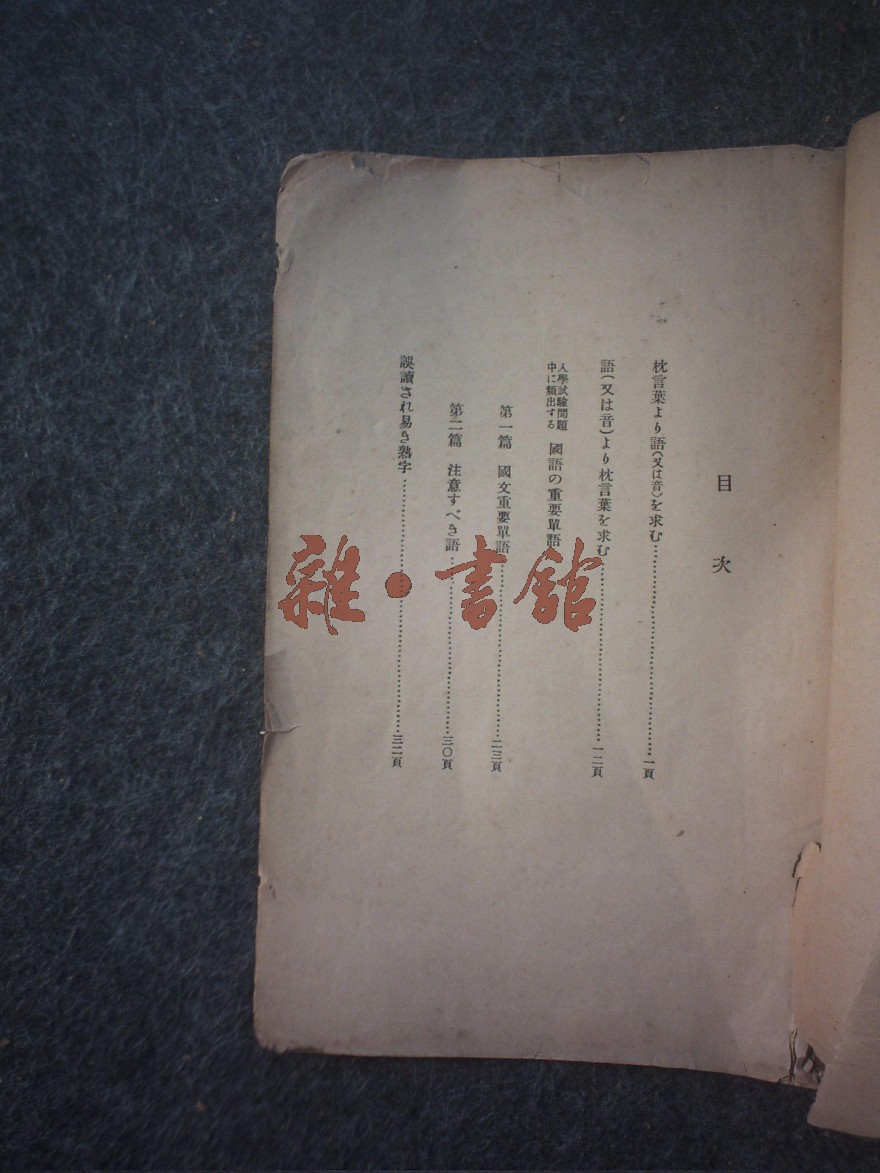 目次
枕言葉より語(又は音)を求む……一頁
語(又は音)より枕言葉を求む……一二頁
入學試驗問題中に頻出する 國語の重要單語
第一篇 國文重要單語……二三頁
第二篇 注意すべき語……三〇頁
誤讀され易き熟字……三二頁
雜·書館